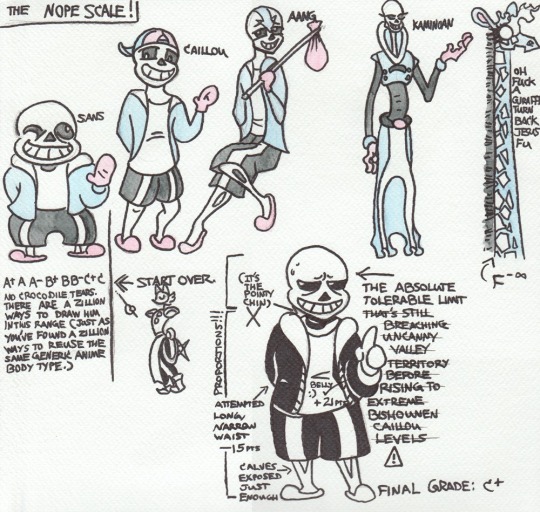 THE NOPE SCALE!!
SANS
CAILLOU
AANG
KAMINOAN
OH
FUCK
A
GIRAFFE
TURN
BACK
JESUS
FU
F-∞
A+ A A- B+ B B- C+ C
NO CROCODILE TEARS.
THERE ARE A ZILLION
WAYS TO DRAW HIM
IN THIS RANGE (JUST AS
YOU'VE FOUND A ZILLION
WAYS TO REUSE THE
SAME GENERIC ANIME
BODY TYPE.)
START OVER.
PROPORTIONS!!!
(IT'S
THE
POINTY
CHIN)
ATTEMPTED
LONG,
NARROW
WAIST
-15 PTS
CALVES
EXPOSED
JUST
ENOUGH
BELLY
:) ✓
+21 PTS
THE ABSOLUTE
TOLERABLE LIMIT
THAT'S STILL
BREACHING
UNCANNY
VALLEY
TERRITORY
BEFORE
RISING TO
EXTREME
BISHOUNEN
CAILLOU
LEVELS
!
FINAL GRADE: C+